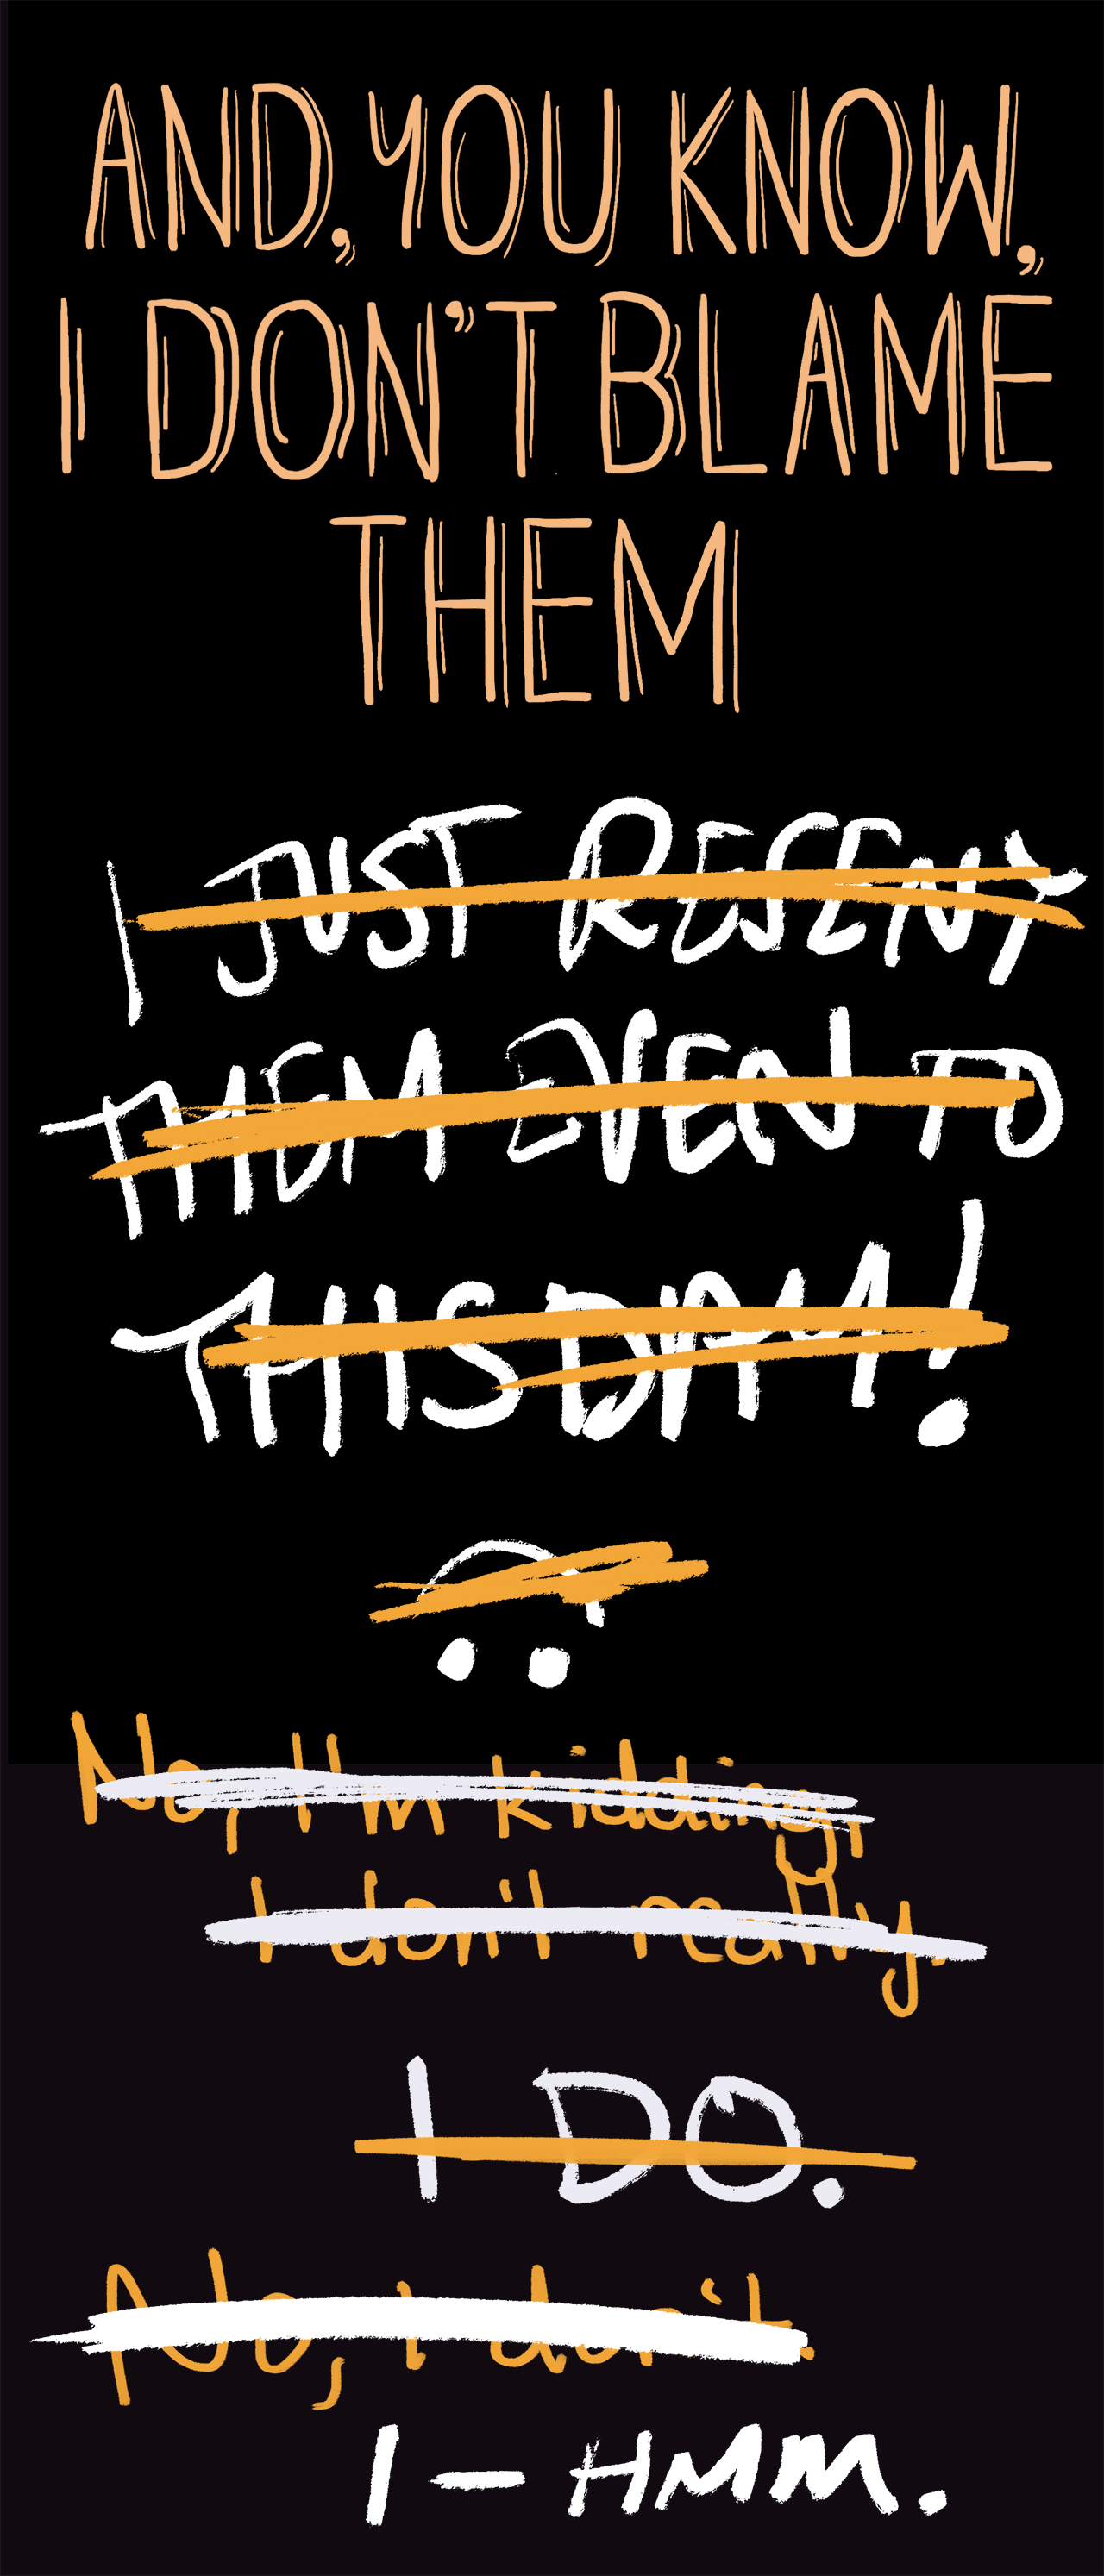 AND, YOU KNOW,
I DON'T BLAME
THEM
I JUST RESENT
THEM EVEN TO
THIS DAY!
No, I'm kidding,
I don't really.
I DO.
No, I don't.
I – HMM.